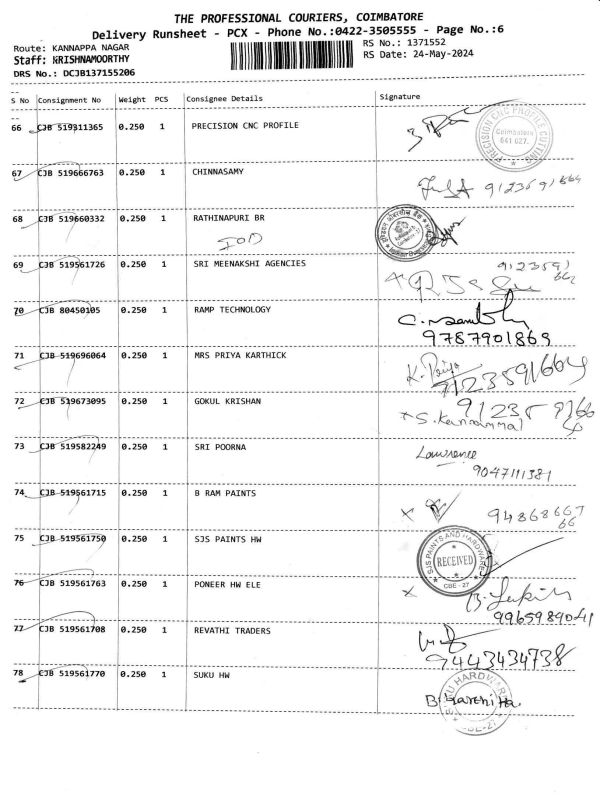 THE PROFESSIONAL COURIERS, COIMBATORE
Delivery Runsheet - PCX - Phone No.:0422-3505555 - Page No.:6
Route: KANNAPPA NAGAR RS No.: 1371552
Staff: KRISHNAMOORTHY RS Date: 24-May-2024
DRS No.: DCJB137155206
S No Consignment No Weight PCS Consignee Details Signature
66 CJB 519311365 0.250 1 PRECISION CNC PROFILE
PRECISION CNC PROFILE CUTTING
Coimbatore
641 027.
67 CJB 519666763 0.250 1 CHINNASAMY
68 CJB 519660332 0.250 1 RATHINAPURI BR
IOD
69 CJB 519561726 0.250 1 SRI MEENAKSHI AGENCIES
70 CJB 80450105 0.250 1 RAMP TECHNOLOGY
9787901869
71 CJB 519696064 0.250 1 MRS PRIYA KARTHICK
K. Priya
9123591664
72 CJB 519673095 0.250 1 GOKUL KRISHAN
S. Kannammal
73 CJB 519582249 0.250 1 SRI POORNA Lawrence
9047111381
74 CJB 519561715 0.250 1 B RAM PAINTS
75 CJB 519561750 0.250 1 SJS PAINTS HW
SJS PAINTS AND HARDWARES
RECEIVED
CBE - 27
76 CJB 519561763 0.250 1 PONEER HW ELE
9965989041
77 CJB 519561708 0.250 1 REVATHI TRADERS
9443434738
78 CJB 519561770 0.250 1 SUKU HW